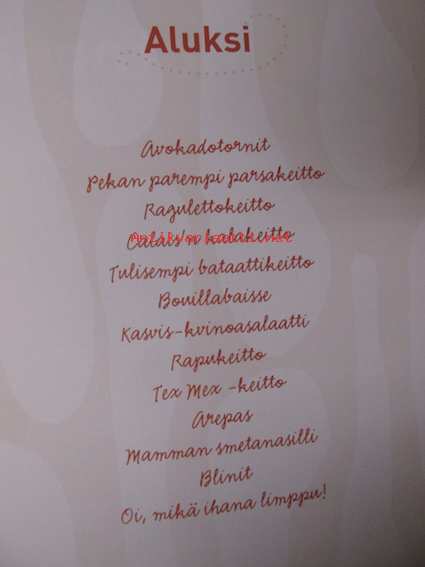 Aluksi
Avokadotornit
Pekan parempi parsakeitto
Ragulettokeitto
Calais'n kalakeitto
Tulisempi bataattikeitto
Bouillabaisse
Kasvis-kvinoasalaatti
Rapukeitto
Tex Mex -keitto
Arepas
Mamman smetanasilli
Blinit
Oi, mikä ihana limppu!